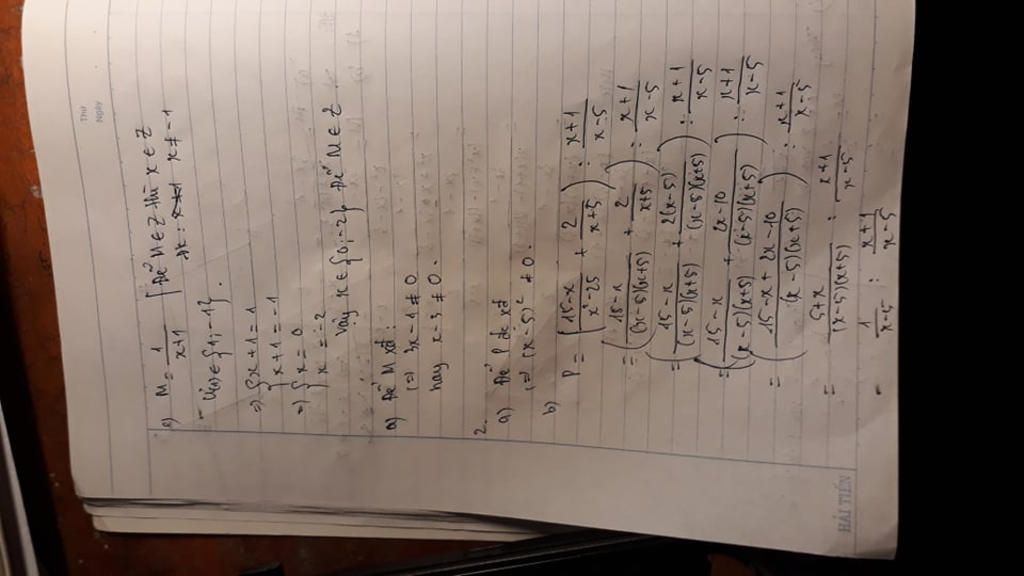 Thứ
Ngày
c) M = 1/(x+1) [Để M ∈ Z thì x ∈ Z
x ≠ -1
Ư(1) = {1; -1}.
=> { x+1 = 1
{ x+1 = -1
=> { x = 0
{ x = -2
Vậy x ∈ {0; -2} để M ∈ Z.
a) Để M xđ:
(=>
hay x-3 ≠ 0.
2.
a) Để P đc xđ
(=> (x-5)² ≠ 0.
b)
P = ((15-x)/(x²-25) + 2/(x+5)) : (x+1)/(x-5)
= ((15-x)/((x-5)(x+5)) + 2/(x+5)) : (x+1)/(x-5)
= ((15-x)/((x-5)(x+5)) + 2(x-5)/((x-5)(x+5))) : (x+1)/(x-5)
= ((15-x)/((x-5)(x+5)) + (2x-10)/((x-5)(x+5))) : (x+1)/(x-5)
= ((15-x+2x-10)/((x-5)(x+5))) : (x+1)/(x-5)
= (5+x)/((x-5)(x+5)) : (x+1)/(x-5)
= 1/(x-5) : (x+1)/(x-5)
HẢI TIẾN